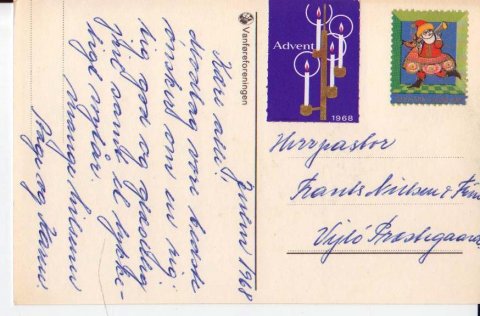 Julen 1968
Kære alle!
Modtag vore bedste
ønsker om en rig-
tig god og glædelig
jul samt et lykke-
ligt nytår.
Mange hilsener
Aage og
Vanføreforeningen
Advent
1968
Herr pastor
Frants Nielsen &
Præstegaard